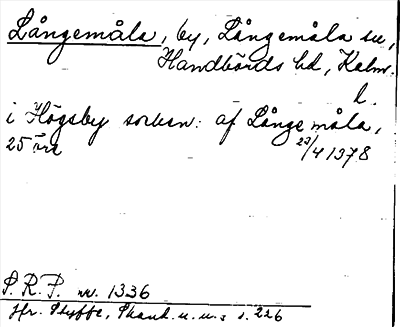 Långemåla, by, Långemåla sn,
Handbörds hd, Kalm.
l.
i Högsby sorken: af Långe måla,
25 öre 23/4 1378
P.R.P. nr. 1336
Hr. Styffe, Skand. u. u:s s. 226